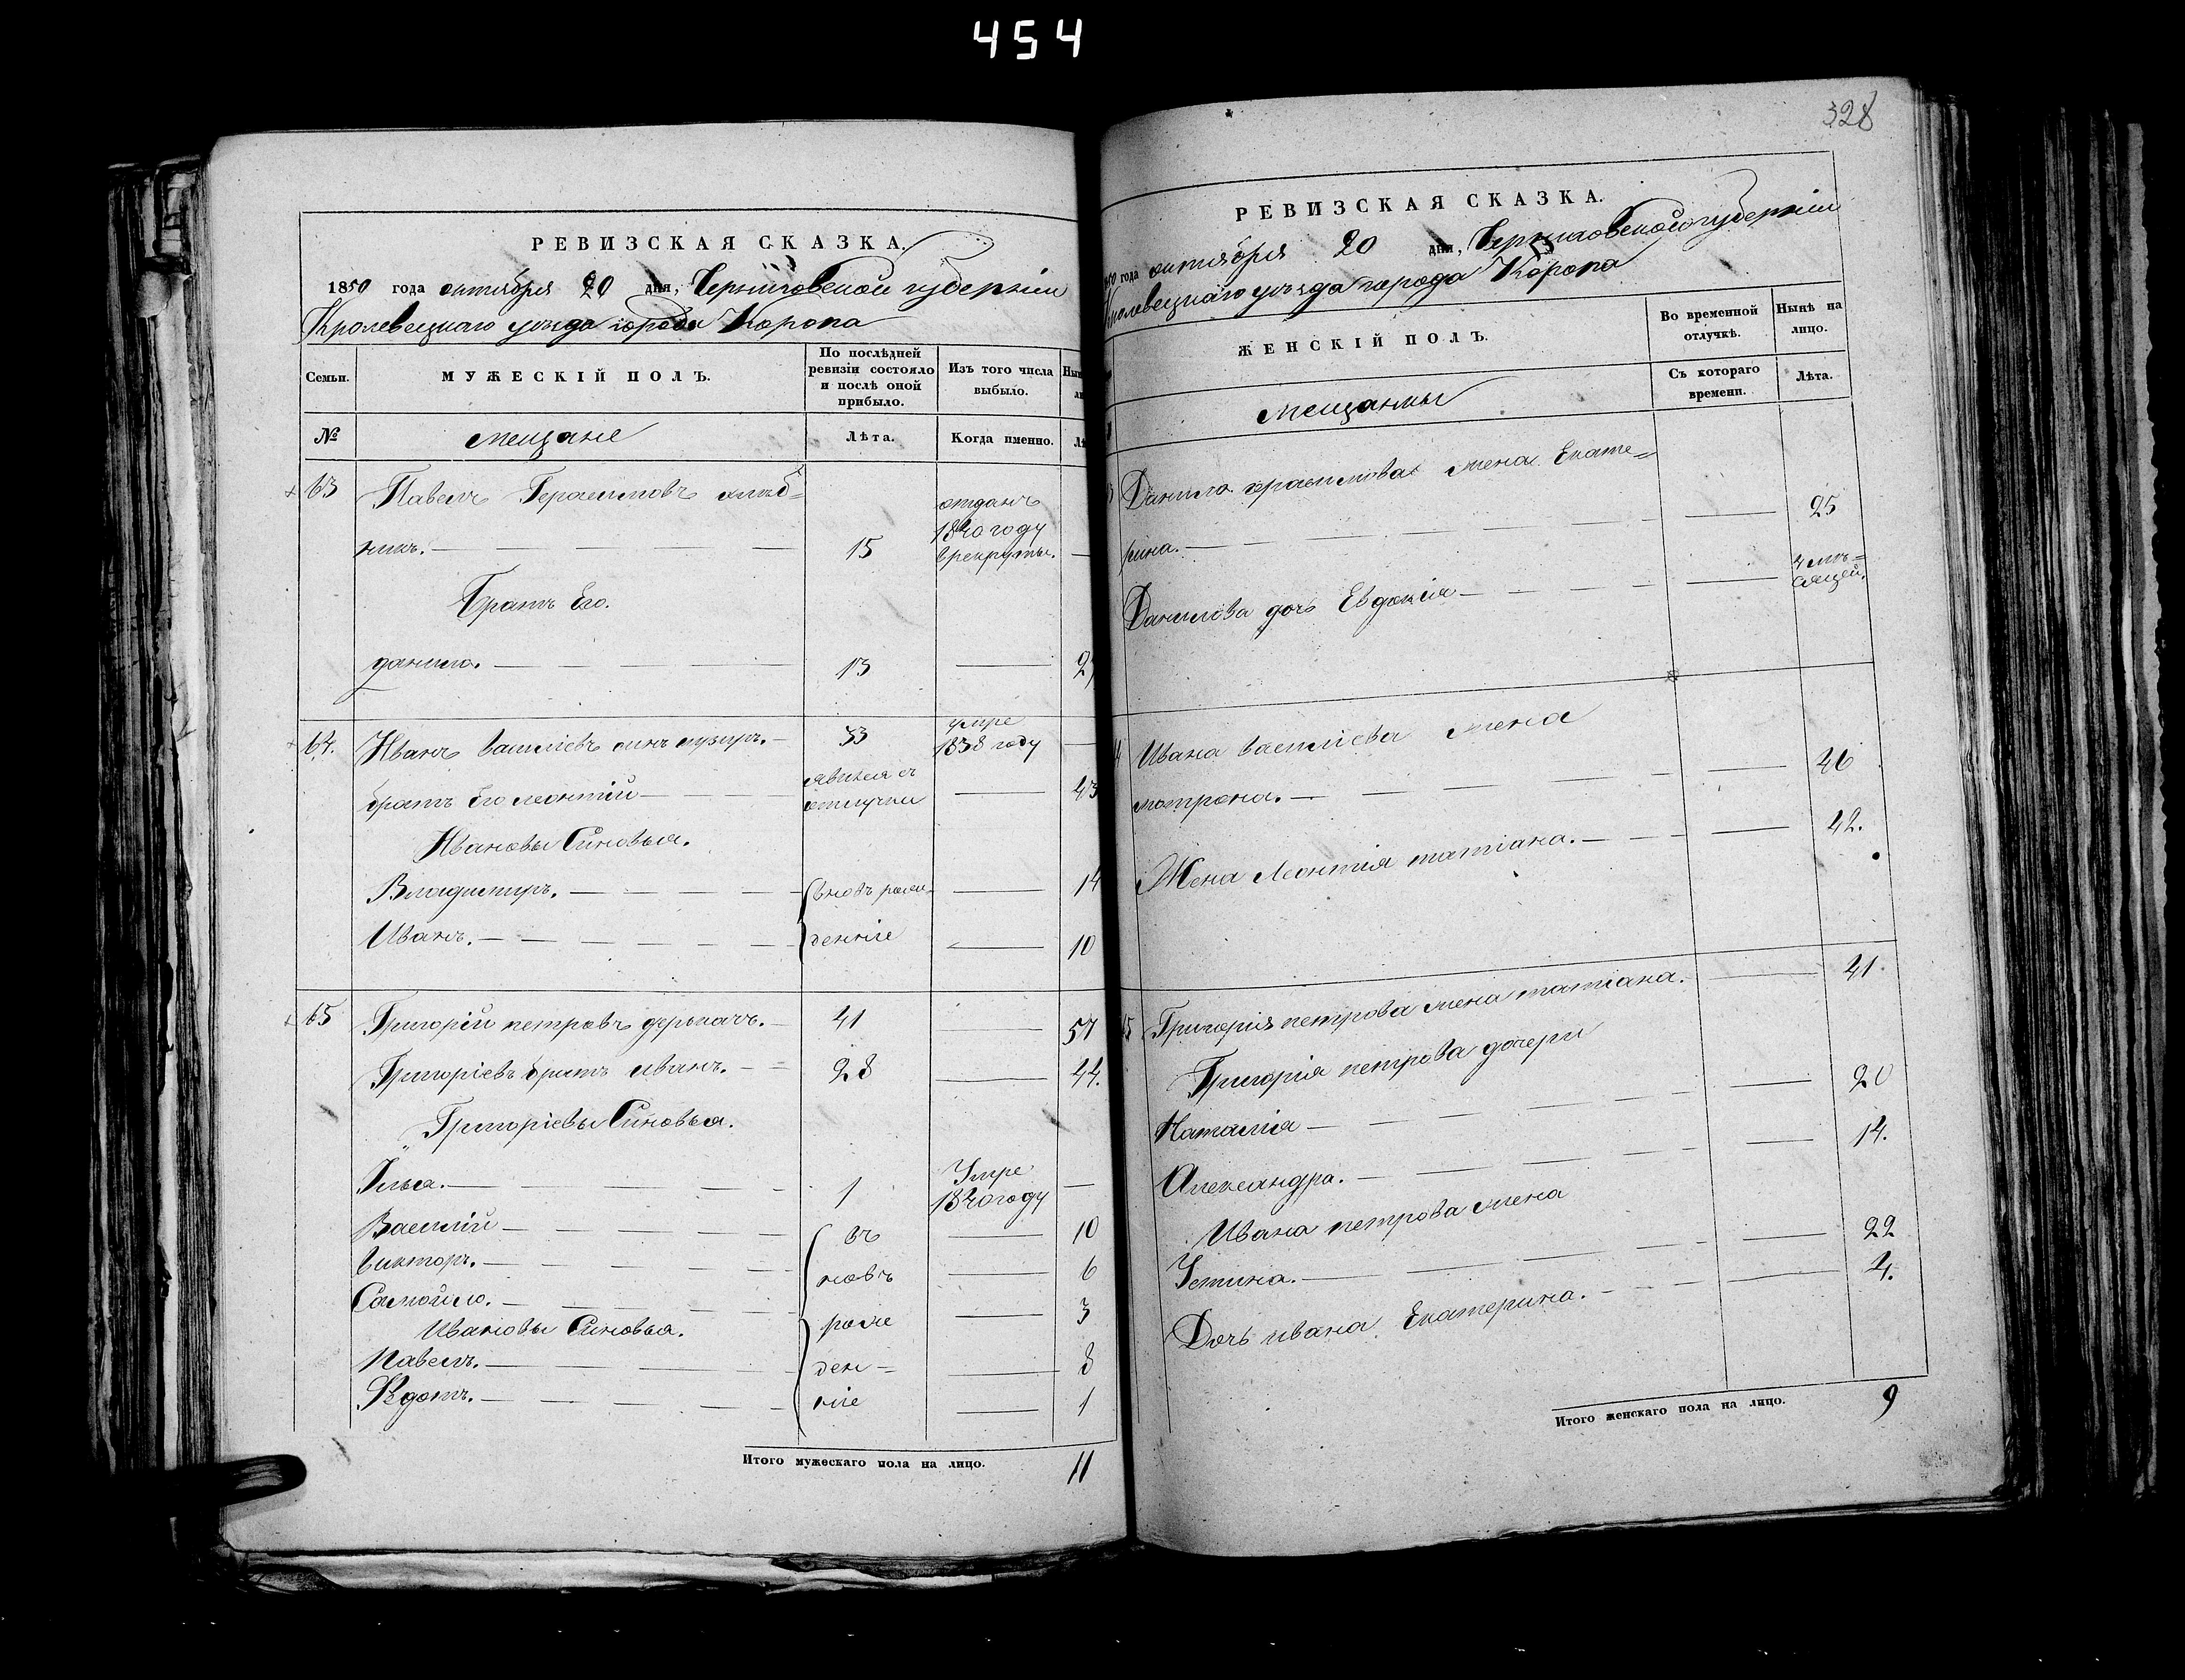 454
328
РЕВИЗСКАЯ СКАЗКА.
1850 года октября 20 дня, Черниговской губерніи
Кролевецкаго уезда города Коропа
Семьи.
МУЖЕСКІЙ ПОЛЪ.
По послѣдней ревизіи состояло и послѣ оной прибыло.
Изъ того числа выбыло.
№
мещане
Лѣта.
Когда именно.
63
Павелъ Герасимовъ хлѣб=
никъ.
15
отданъ
1840 году
врекруты.
Братъ Его.
данило.
13
64.
Иванъ василіевъ синъ
33
умре
1838 году
братъ Его леонтій
явился съ
отлучки
43
Ивановы Синовья.
Владимиръ.
вновь рож
14
Иванъ.
денніе
10
65
Григорій петровъ деркачъ.
41
57
Григоріевъ братъ иванъ.
28
44.
Григоріевы Синовья.
Илья.
1
Умре
1840 году
Василій
въ
10
викторъ.
новъ
6
Самойло.
3
Ивановы Синовья.
рож
Павелъ.
ден=
8
Федотъ.
ніе
1
Итого мужескаго пола на лицо.
11
РЕВИЗСКАЯ СКАЗКА.
года октября 20 дня, Черниговской губерніи
Кролевецкаго уезда города Коропа
ЖЕНСКІЙ ПОЛЪ.
Во временной отлучкѣ.
Нынѣ на лицо.
мещанки
Съ котораго времени.
Лѣта.
Данила герасимова жена Екате=
рина.
25
Данилова дочь Евдокія
4 мѣ=
сяцей.
Ивана василіева жена
мотрона.
46
Жена Леонтія татіана.
42.
Григорія петрова жена татіана.
41.
Григорія петрова дочери
Наталія
20
Александра.
14.
Ивана петрова жена
Устина.
22
Дочь ивана Екатерина.
4.
Итого женскаго пола на лицо.
9